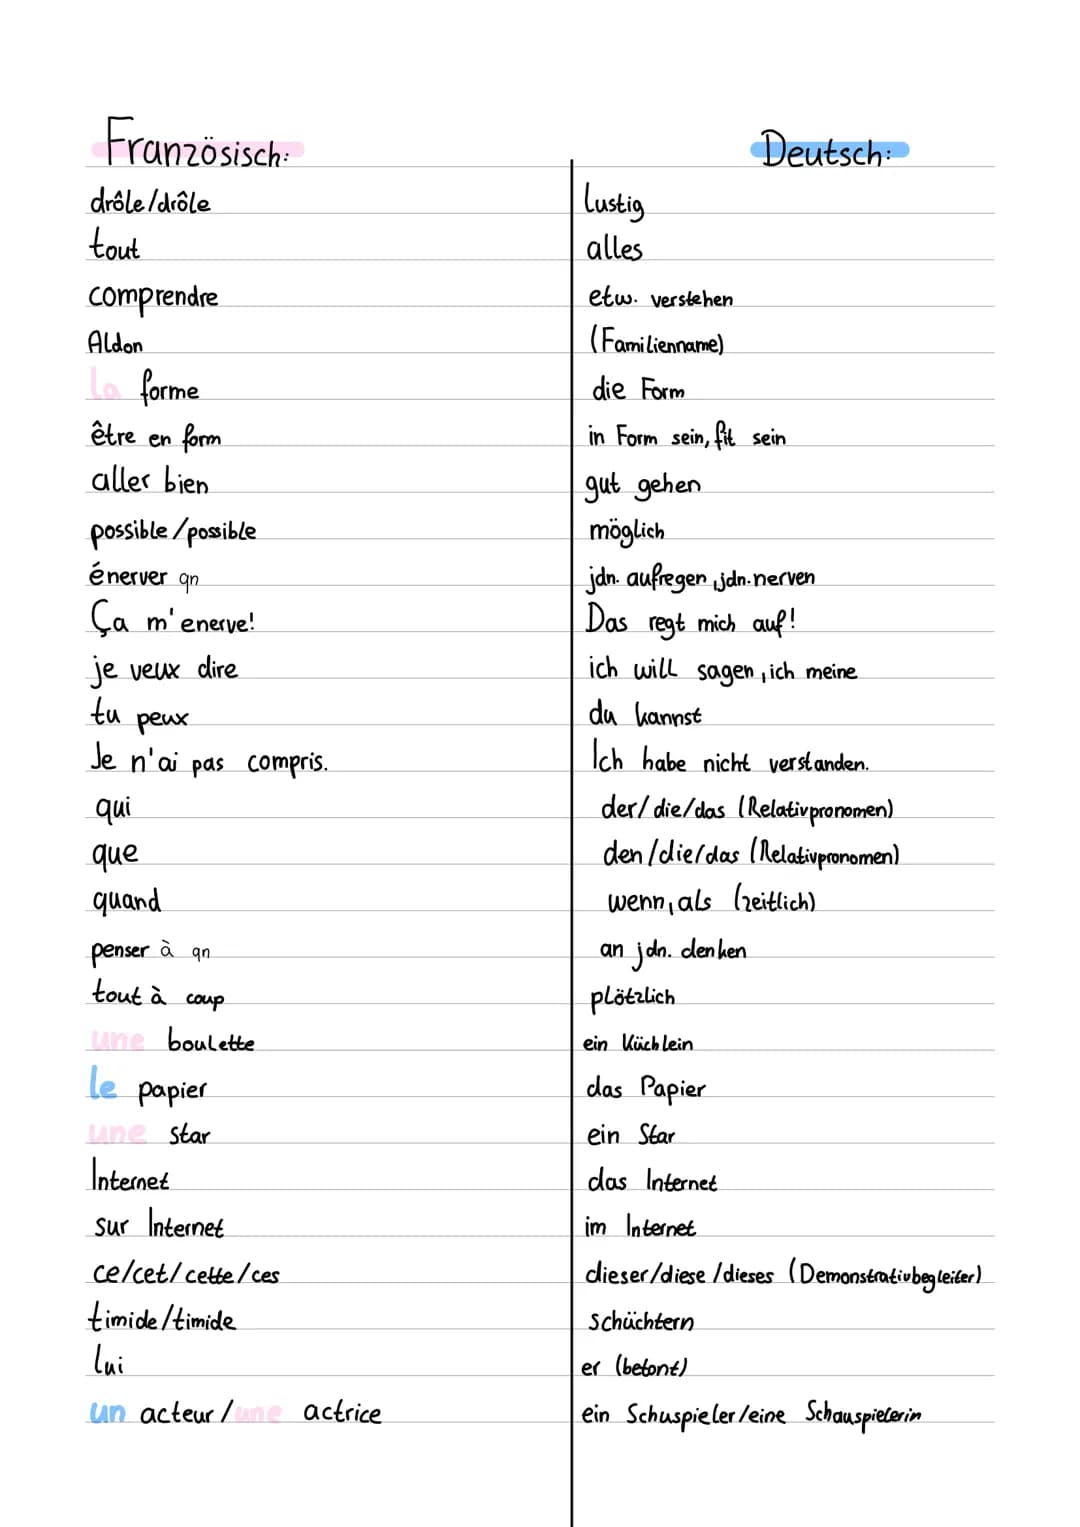 Französisch: Deutsch:
drôle/drôle lustig
tout alles
comprendre etw. verstehen
Aldon (Familienname)
la forme die Form
être en form in Form sein, fit sein
aller bien gut gehen
possible/possible möglich
énerver qn jdn. aufregen, jdn. nerven
Ça m'enerve! Das regt mich auf!
je veux dire ich will sagen, ich meine
tu peux du kannst
Je n'ai pas compris. Ich habe nicht verstanden.
qui der/die/das (Relativpronomen)
que den/die/das (Relativpronomen)
quand wenn, als (zeitlich)
penser à qn an jdn. denken
tout à coup plötzlich
une boulette ein Küchlein
le papier das Papier
une star ein Star
Internet das Internet
sur Internet im Internet
ce/cet/cette/ces dieser/diese/dieses (Demonstrativbegleiter)
timide/timide schüchtern
lui er (betont)
un acteur/une actrice ein Schuspieler/eine Schauspielerin